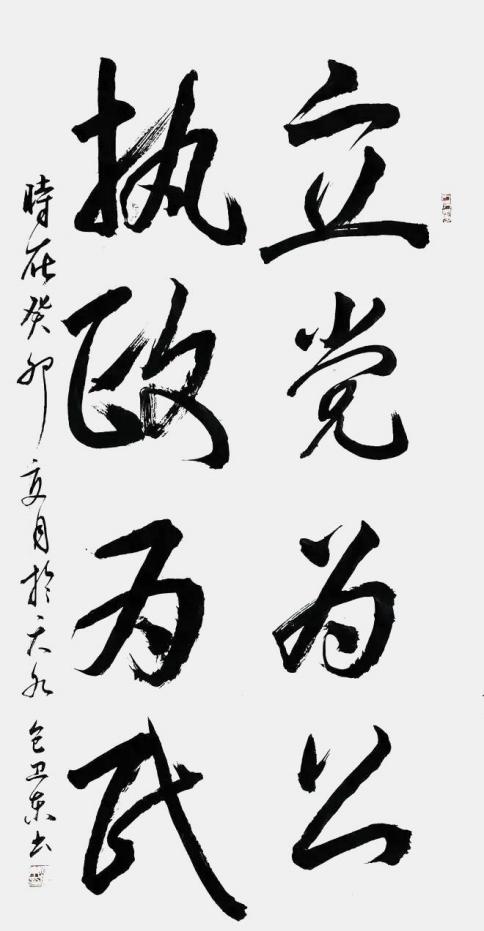 立党为公
执政为民
時在癸卯夏月於天水包卫东书